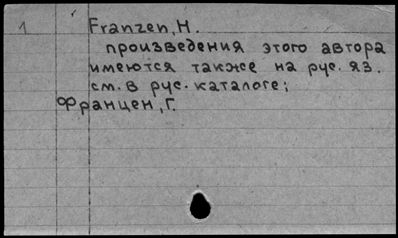 1 Franzen, H.
произведения этого автора
имеются также на рус. яз.
см. в рус. каталоге;
Францен, Г.